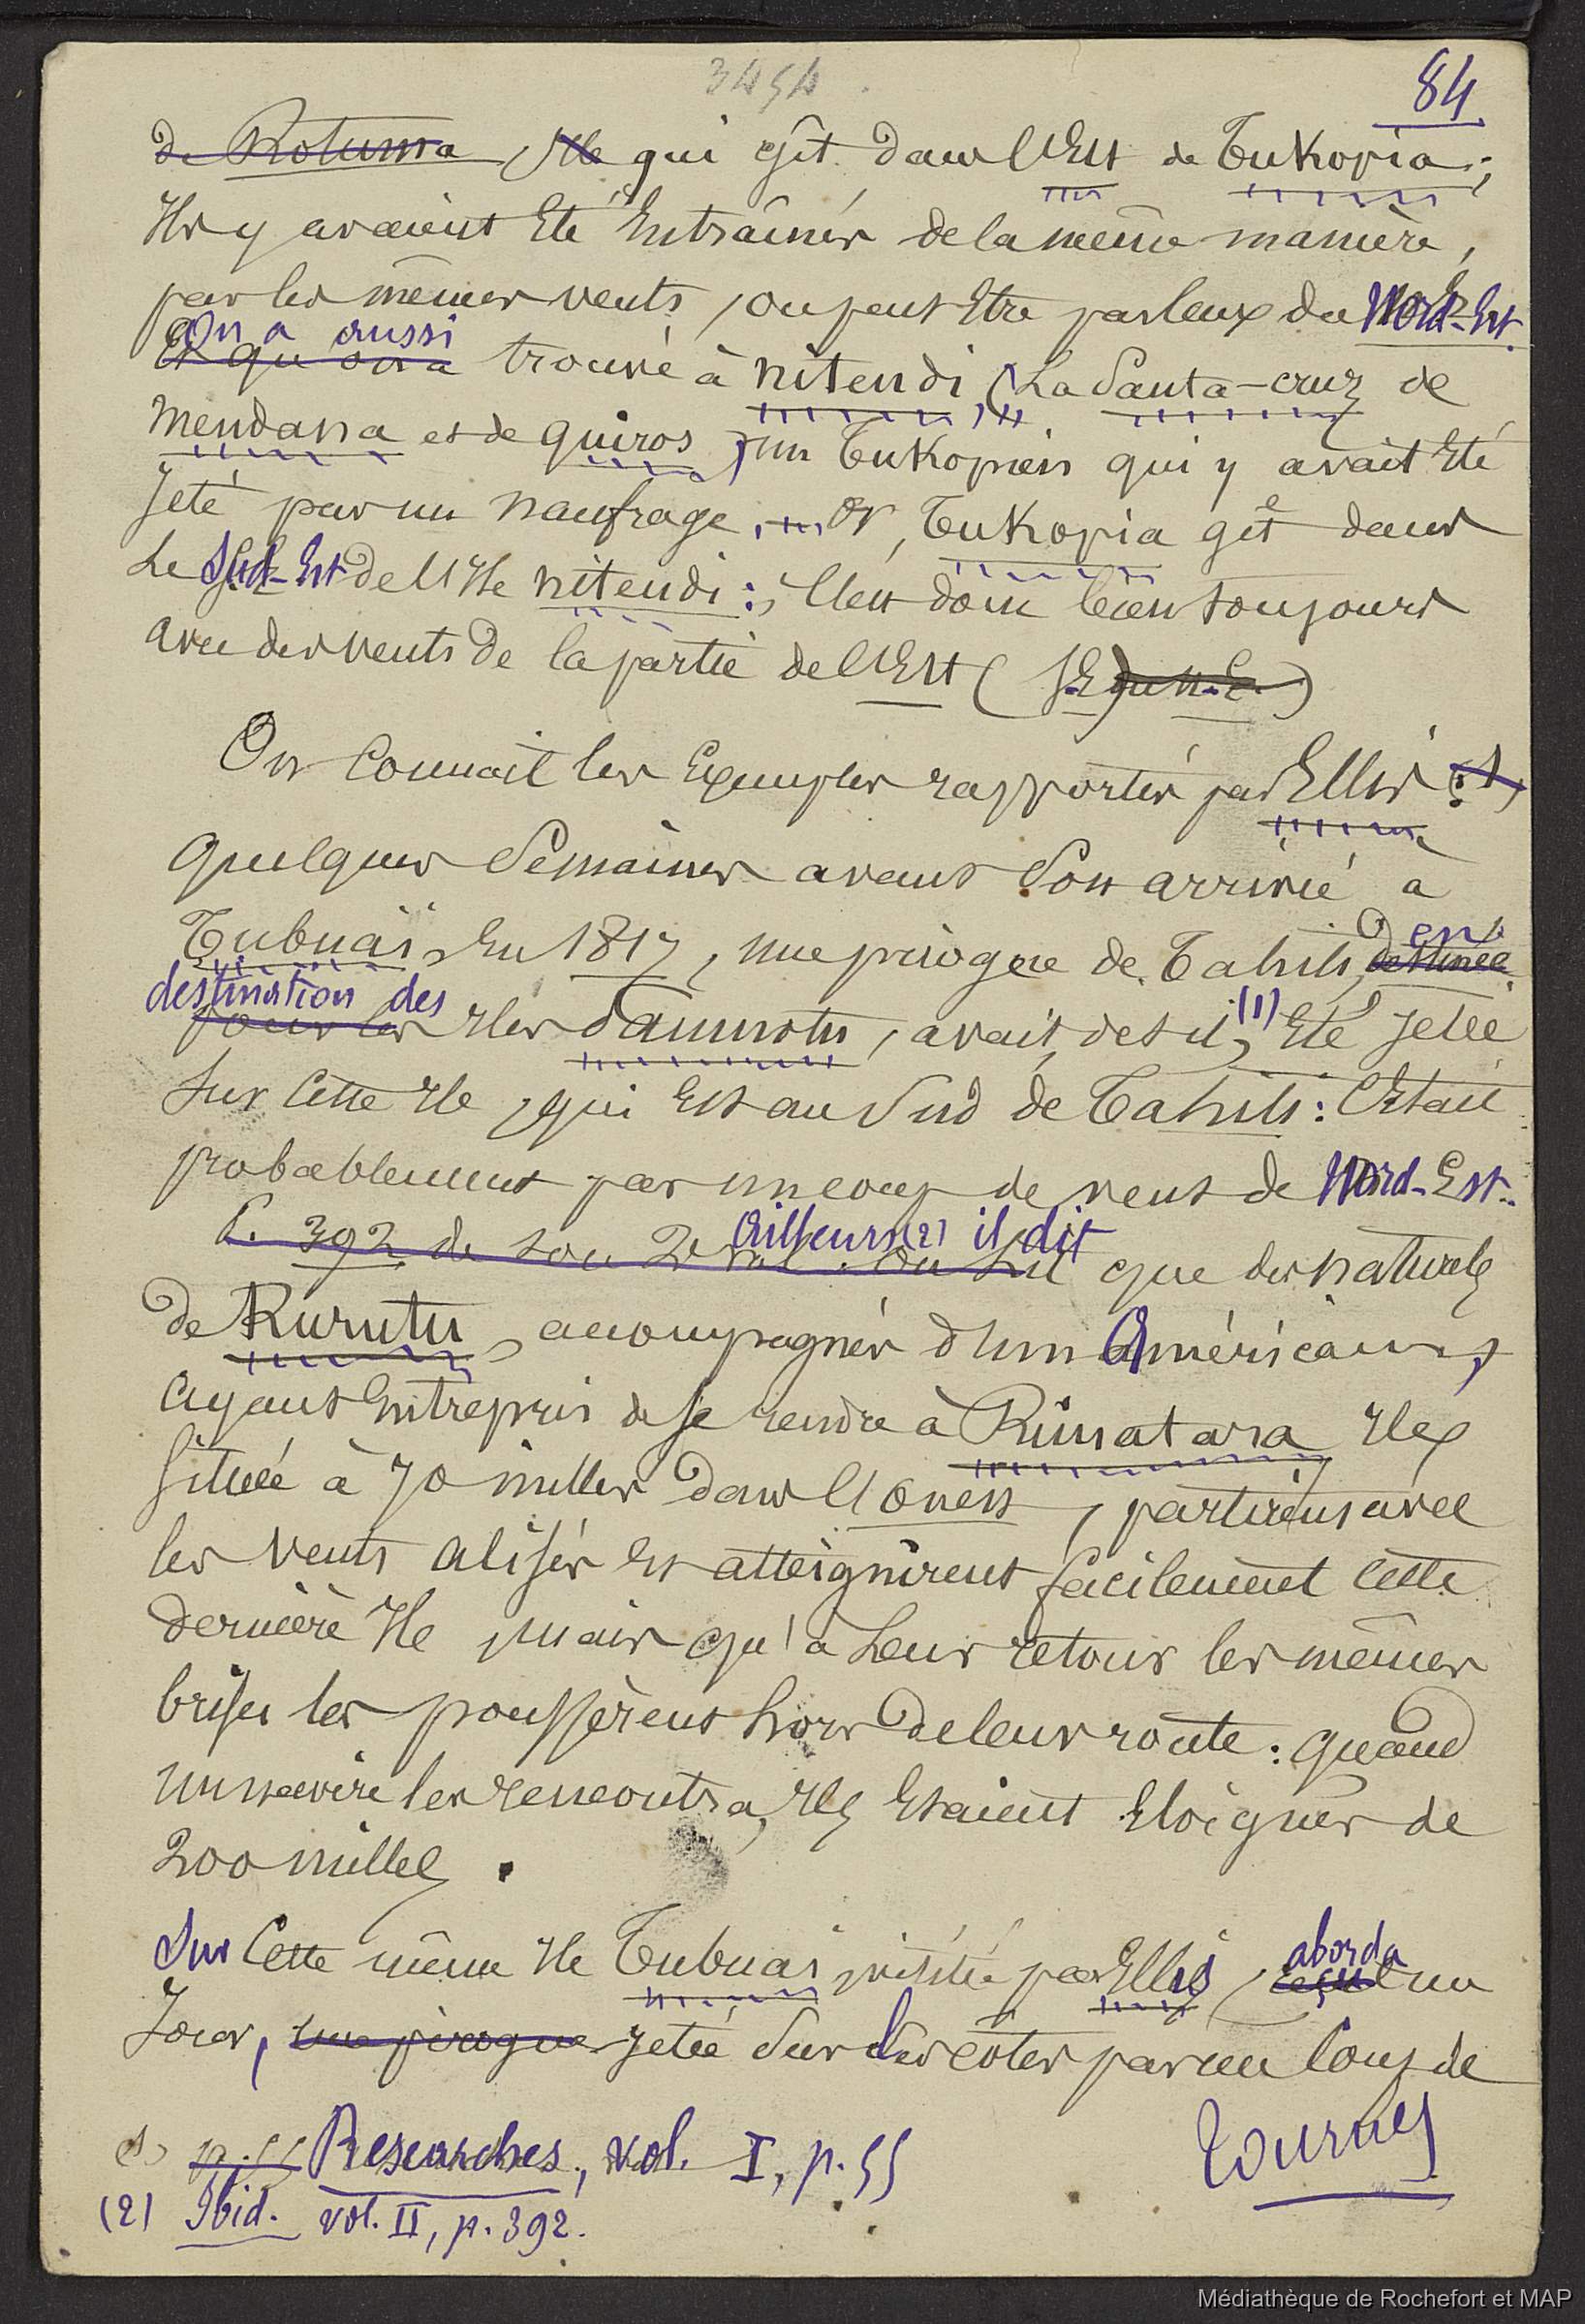 3454
84
de Rotuma, île qui gît dans l'Est de Tukopia;
Ils y avaient été entraînés de la même manière,
par les mêmes vents, ou peut être par ceux du Nord-Est.
On a aussi
et qu'on a trouvé à Nitendi, (La Santa-Cruz de
Mendana et de Quiros), un Tukopien qui y avait été
jeté par un naufrage. Or, Tukopia gît dans
le Sud-Est de l'île Nitendi: c'est donc bien toujours
avec des vents de la partie de l'Est (S.E. ou N.E.)
On connait les exemples rapportés par Ellis :
quelques semaines avant son arrivée à
Tubuaï, en 1817, une pirogue de Tahiti, destinée
en
destination des
pour les îles Paumotu, avait, dit-il, (1) été jetée
sur cette île, qui est au Sud de Tahiti: C'était
probablement par un coup de vent de Nord-Est.
Ailleurs (2) il dit
P. 392 de son 2e vol. on lit que des naturels
de Rurutu, accompagnés d'un Américain,
ayant entrepris de se rendre à Rimatara île
située à 70 milles dans l'Ouest, partirent avec
les vents alisés et atteignirent facilement cette
dernière île, mais qu'à leur retour les mêmes
brises les poussèrent hors de leur route: quand
un navire les rencontra, ils étaient éloignés de
200 milles.
Sur cette même île Tubuai, visitée par Ellis, aborda un
jour, une pirogue jetée sur les côtes par un coup de
(1) p. 55 Researches, vol. I, p. 55
Tournez
(2) Ibid. vol. II, p. 392.
Médiathèque de Rochefort et MAP